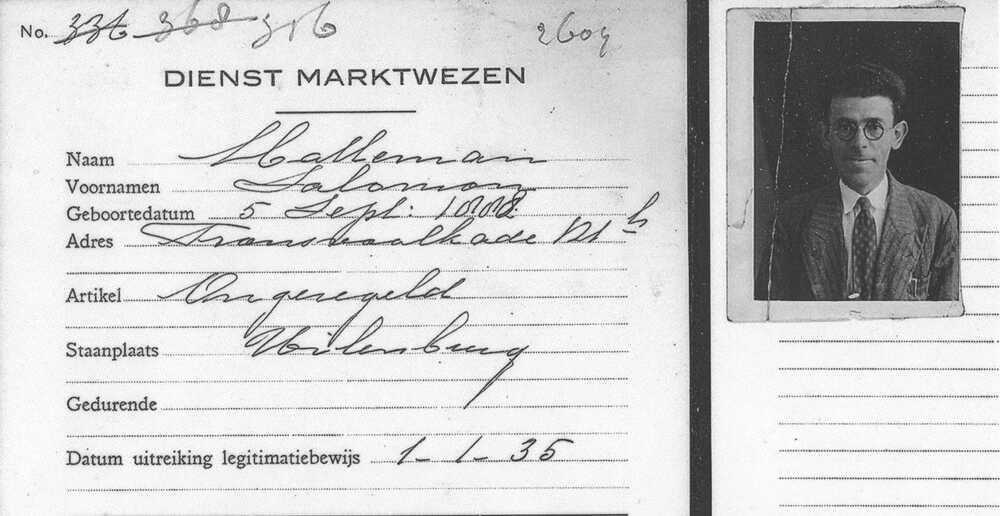 No. 336 368 316 2609
DIENST MARKTWEZEN
Naam Halleman
Voornamen Salomon
Geboortedatum 5 Sept:
Adres Transvaalkade 121 h
Artikel Ongeregeld
Staanplaats Uilenburg
Gedurende
Datum uitreiking legitimatiebewijs 1-1-35